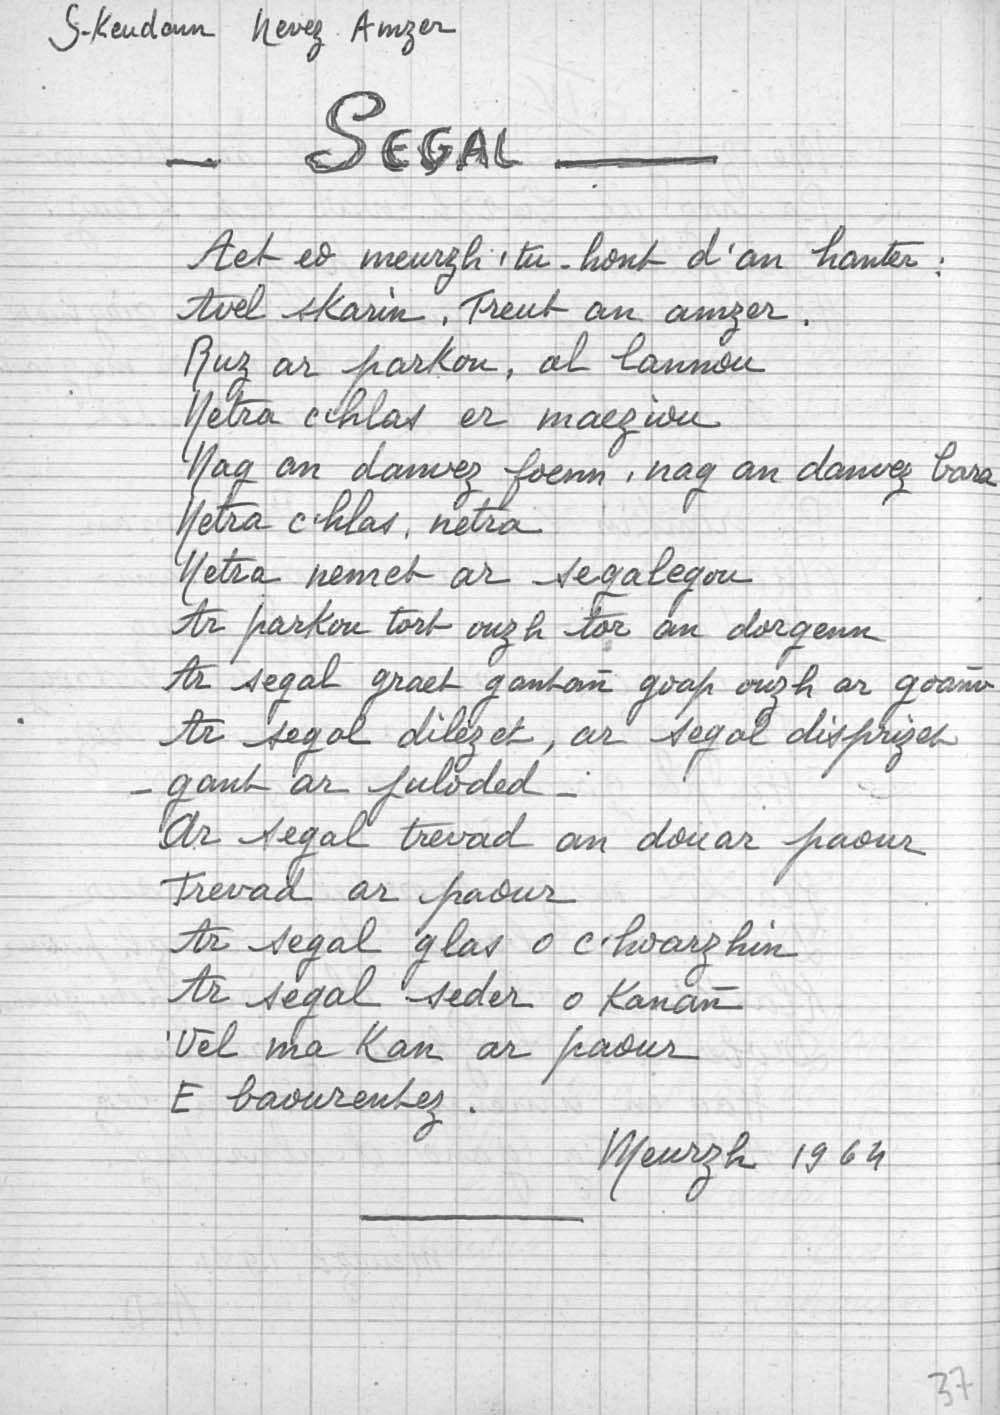 Nevez Amzer
SEGAL
Aet eo meurzh 'tu-hont d'an hanter :
Avel skarin. Treut an amzer.
Ruz ar parkou, al lannou
Netra c'hlas er maeziou
Nag an danvez foenn, nag an danvez bara
Netra c'hlas, netra
Netra nemet ar segalegou
Ar parkou tort ouzh tor an dorgenn
Ar segal graet gantañ goap ouzh ar goañv
Ar segal dilezet, ar segal disprizet
- gant ar fuloded -
Ar segal trevad an douar paour
Trevad ar paour
Ar segal glas o c'hoarzhin
Ar segal seder o kanañ
'Vel ma kan ar paour
E baourentez.
Meurzh 1964
37